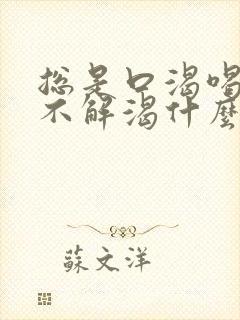 总是口渴喝
不解渴什麽
蘇文洋